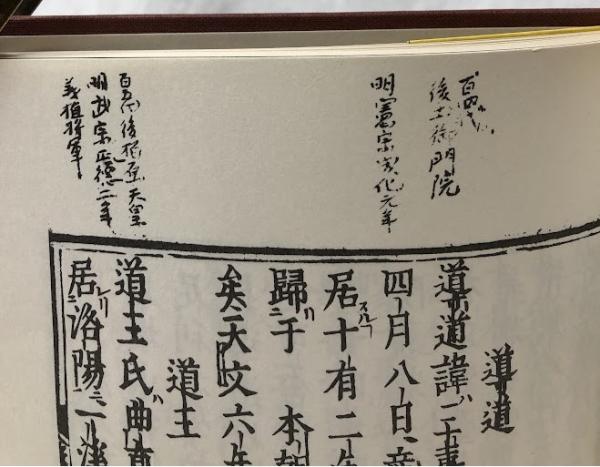 百四代
後土御門院
明憲宗成化元年
百五代後柏原天皇
明武宗正徳二年
義植将軍
導道
導道諱ハ
四月八日
居十有二年
歸于本朝
矣天文六年
道三
道三氏ハ曲直
居洛陽ニ一溪